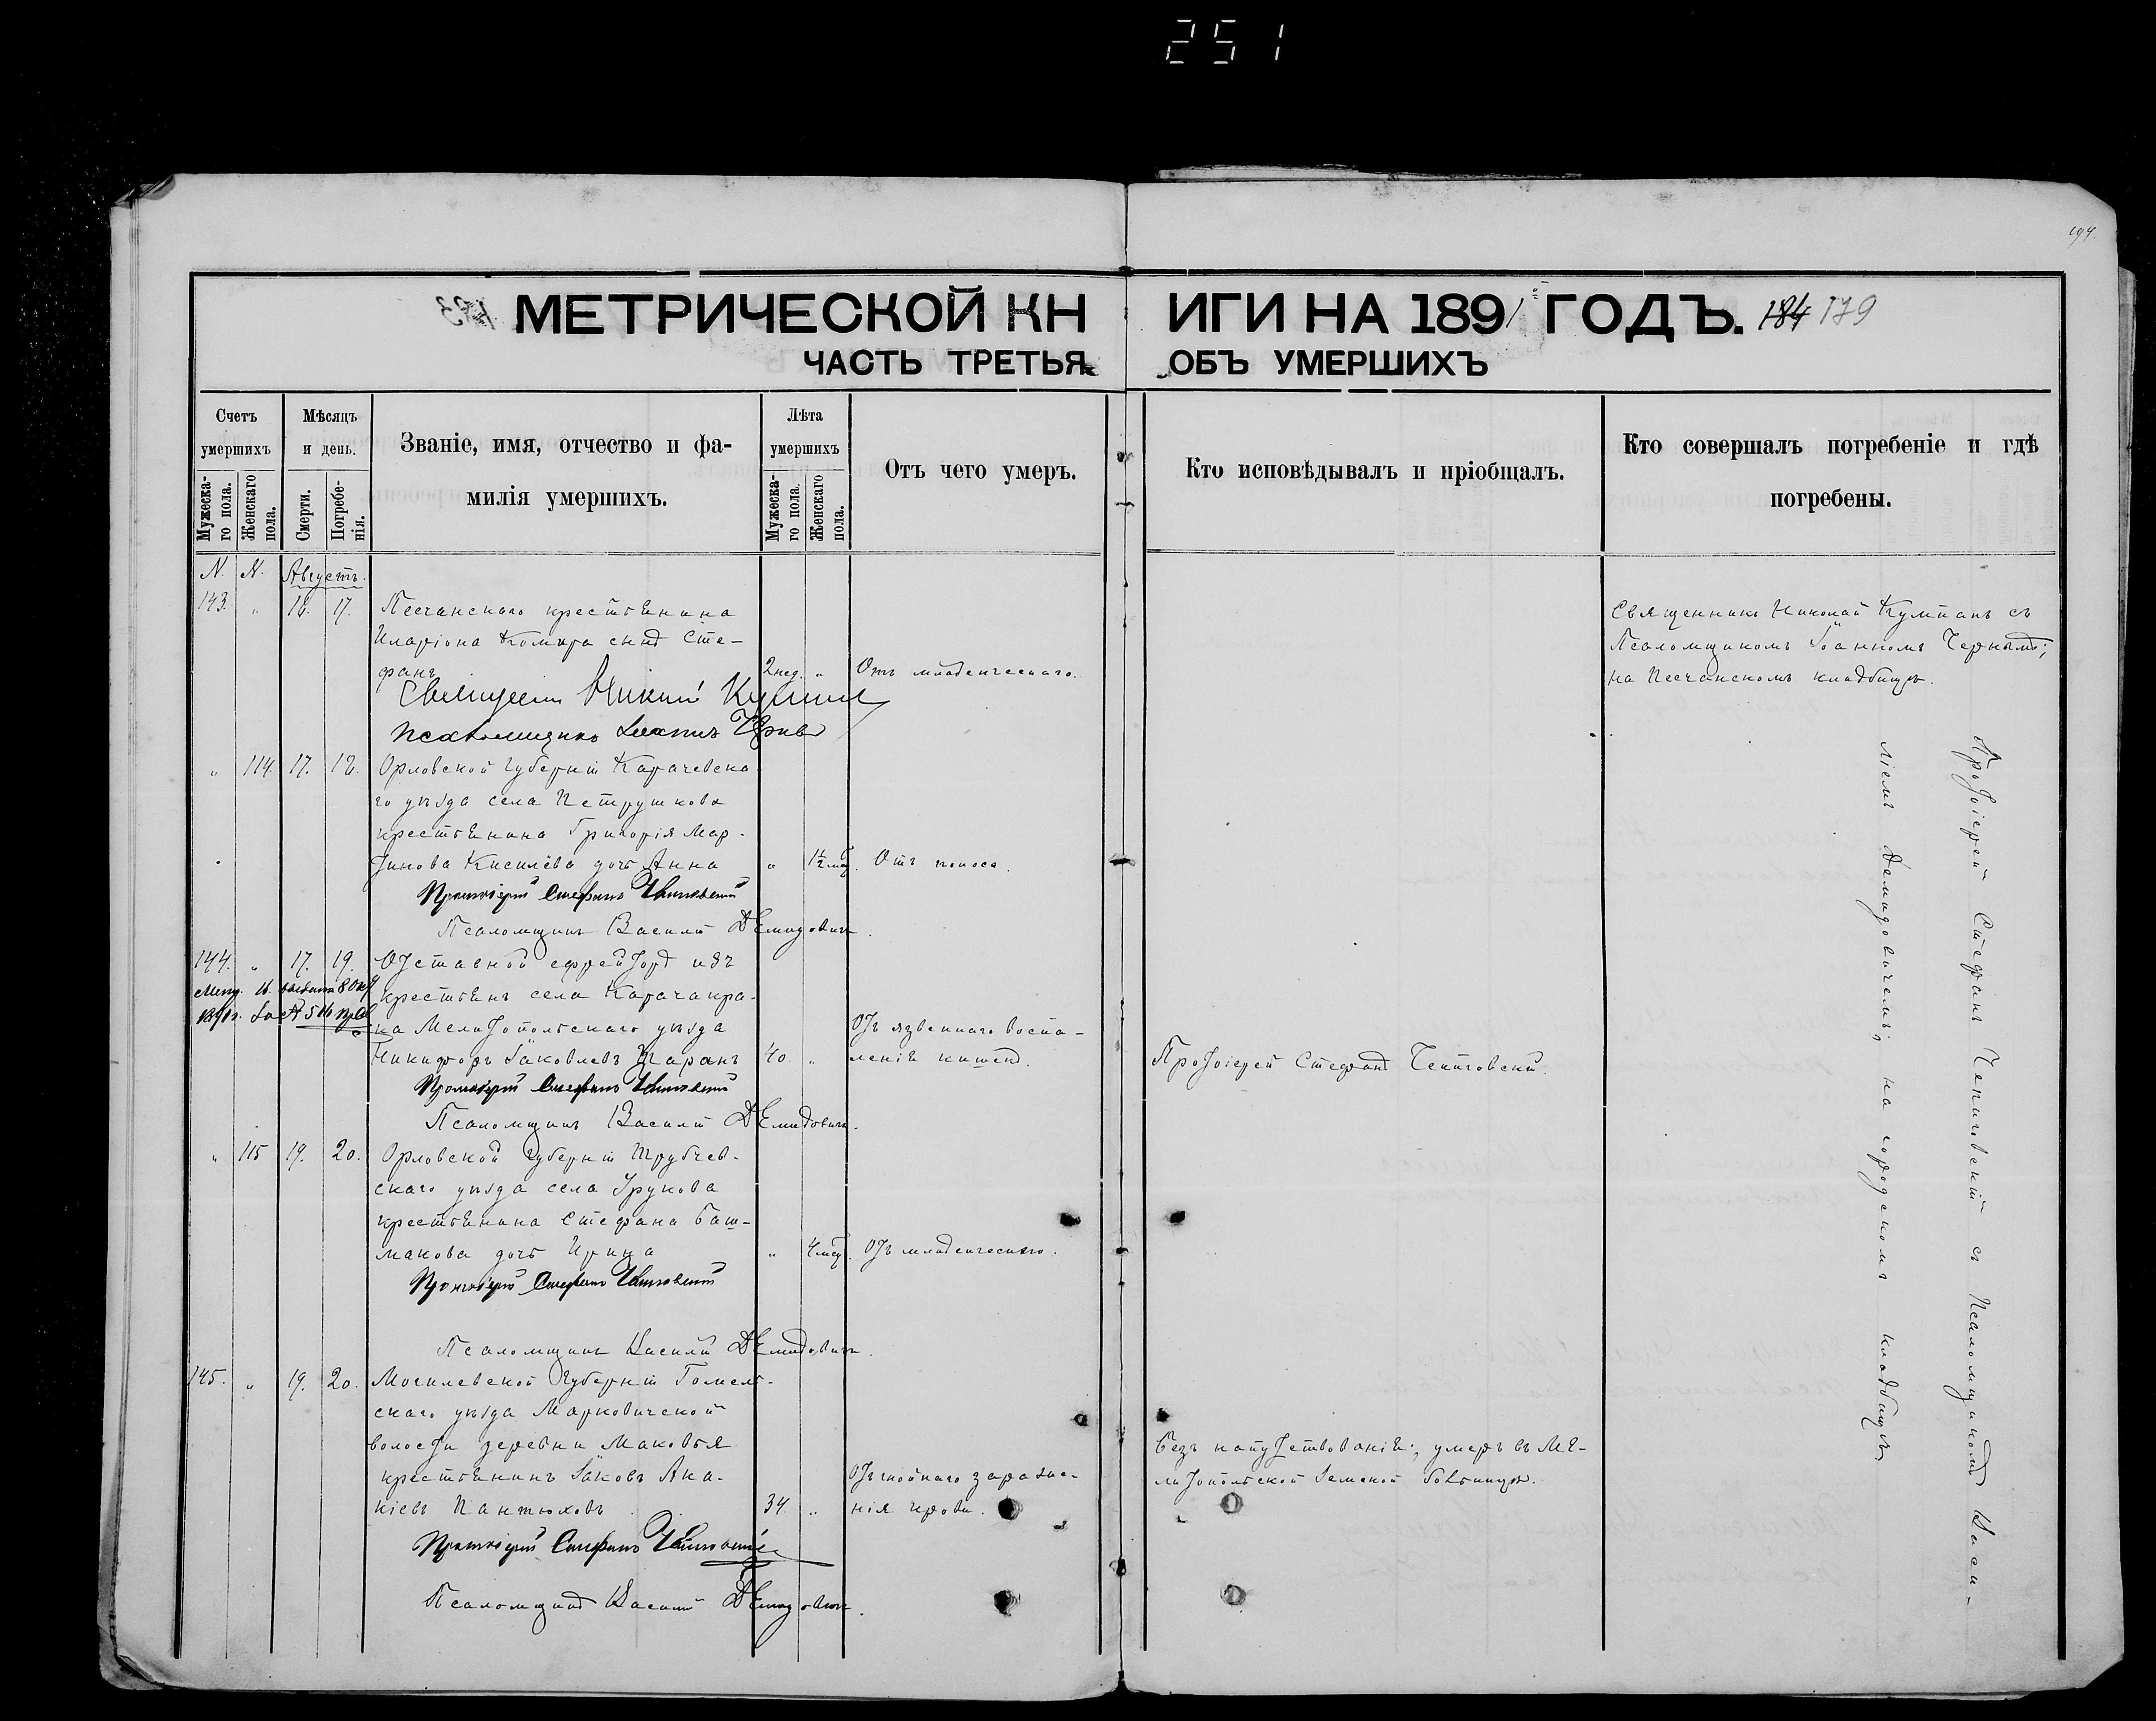 251
194.
МЕТРИЧЕСКОЙ КНИГИ НА 1891 ГОДЪ. 184 179
ЧАСТЬ ТРЕТЬЯ ОБЪ УМЕРШИХЪ
Счетъ умершихъ
Мужеска-го пола.
Женскаго пола.
Мѣсяцъ и день.
Смерти.
Погребе-нія.
Званіе, имя, отчество и фа-
милія умершихъ.
Лѣта умершихъ
Мужеска-го пола.
Женскаго пола.
Отъ чего умеръ.
Кто исповѣдывалъ и пріобщалъ.
Кто совершалъ погребеніе и гдѣ
погребены.
N. N. Августъ.
143. " 16. 17. Песчанскаго крестьянина
Иларіона Комара сынъ Сте-
фанъ 2 нед. " Отъ младенческаго.
Священникъ Николай Кумпанъ съ
Псаломщикомъ Іоанномъ Чернымъ;
на Песчанскомъ кладбищѣ.
Священникъ Николай Кумпан
Псаломщикъ Іоаннъ
" 114. 17. 18. Орловской губерніи Карачевска-
го уѣзда села Петрушкова
крестьянина Григорія Мар-
тинова Киселёва дочь Анна " 1½ мѣс. Отъ поноса.
Протоіерей Стефанъ Чепиговскій
Псаломщикъ Василій Демидовичъ.
144. " 17. 19. Отставной ефрейторъ изъ
крестьянъ села Карачакра-
ка Мелитопольскаго уѣзда
Никифоръ Іаковлевъ 40. "
Отъ язвеннаго воспа-
ленія кишекъ.
Протоіерей Стефанъ Чепиговскій.
Протоіерей Стефанъ Чепиговскій
Псаломщикъ Василій Демидовичъ.
" 115 19. 20. Орловской губерніи Трубчев-
скаго уѣзда села Урукова
крестьянина Стефана Баш-
макова дочь Ирина " 4 мѣс. Отъ младенческаго.
Протоіерей Стефанъ Чепиговскій
Псаломщикъ Василій Демидовичъ.
145. " 19. 20. Могилевской губерніи Гомель-
скаго уѣзда Марковичской
волости деревни Маковья
крестьянинъ Іаковъ Ана-
ніевъ Пантюховъ 34. "
Отъ гнойнаго зараже-
нія крови.
Безъ напутствованія; умеръ въ Ме-
литопольской Земской больницѣ.
Протоіерей Стефанъ Чепиговскій
Псаломщикъ Василій Демидовичъ.
Протоіерей Стефанъ Чепиговскій съ Псаломщикомъ Васи-
ліемъ Демидовичемъ, на городскомъ кладбищѣ